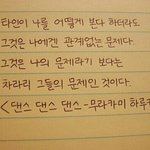 타인이 나를 어떻게 본다 하더라도
그것은 나에겐 관계없는 문제다.
그것은 나의 문제라기 보다는
차라리 그들의 문제인 것이다.
<댄스 댄스 댄스-무라카미 하루키